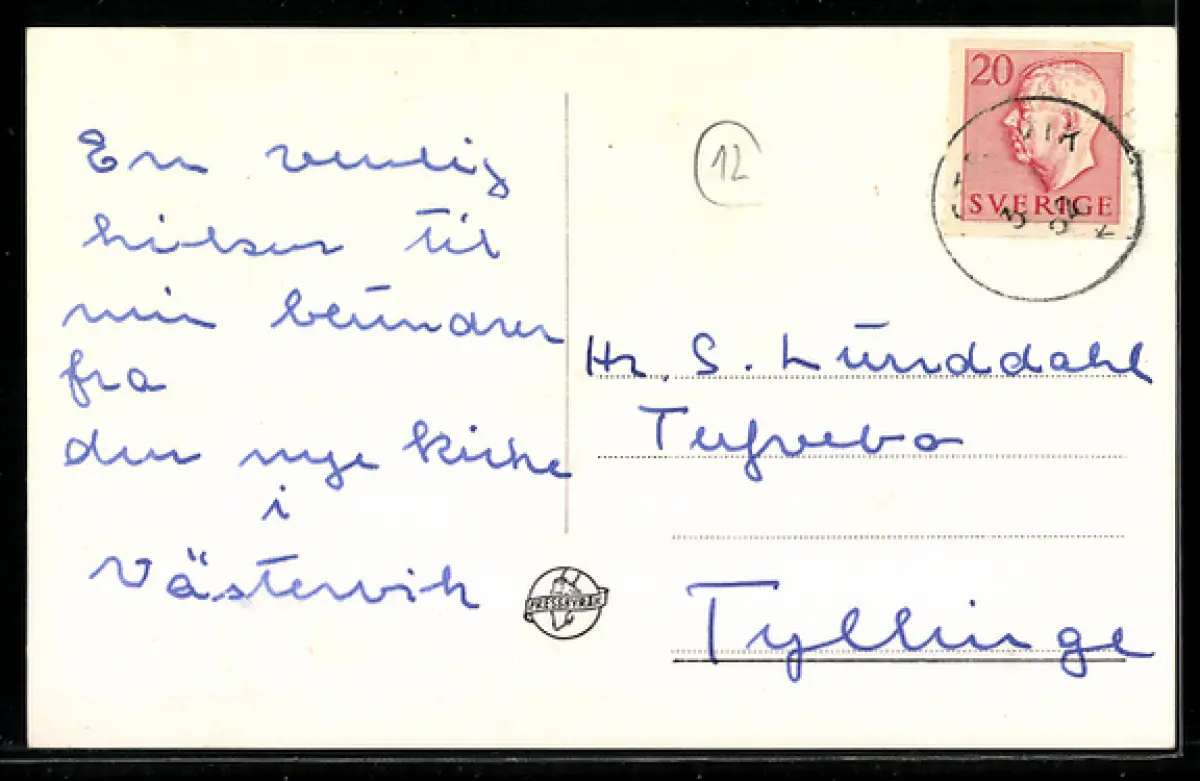 En venlig
hilsen til
min beundrer
fra
den nye kirke
i
Västervik
12
20
SVERIGE
Hr. S. Lunddahl
Tufvebo
Tyllinge
PRESSBYRÅN